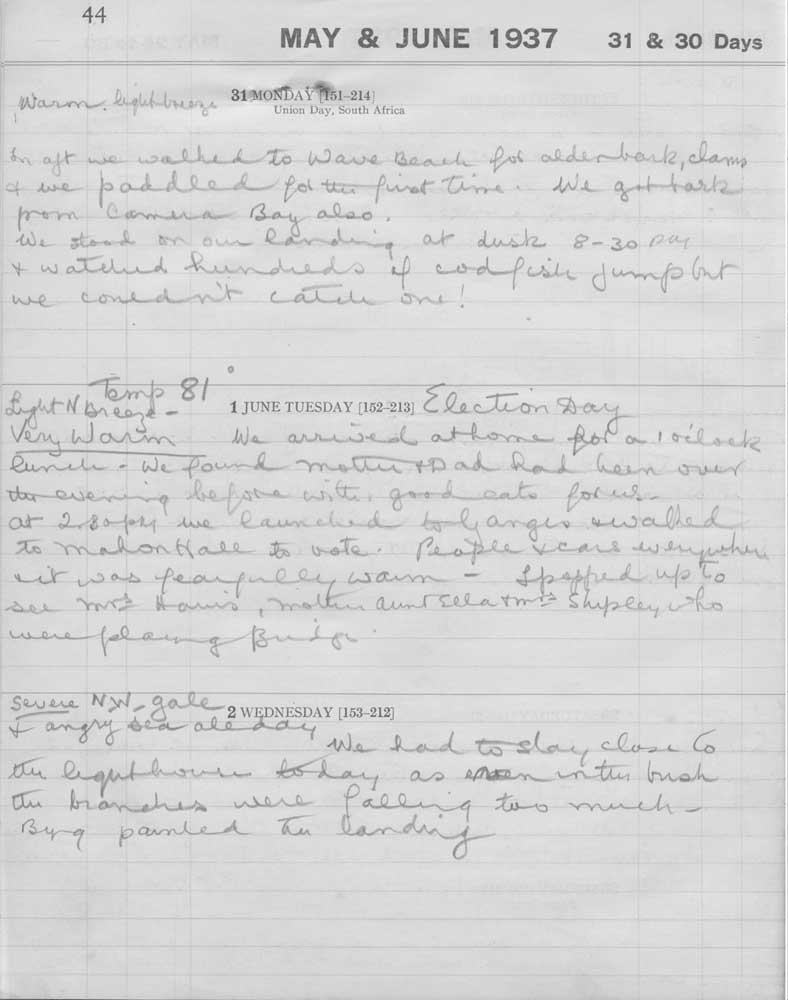 44
MAY & JUNE 1937 31 & 30 Days
Warm. light breeze 31 MONDAY [151-214]
Union Day, South Africa
In aft we walked to Wave Beach for alder bark, clams
& we paddled for the first time. We got bark
from Camera Bay also.
We stood on our landing at dusk 8-30 PM
& watched hundreds of codfish jump but
we couldn't catch one!
Temp 81°
Light N Breeze -
1 JUNE TUESDAY [152-213] Election Day
Very Warm We arrived at home for a 1 o'clock
lunch - We found mother & Dad had been over
the evening before with good eats for us -
at 2.30 PM we launched to Ganges & walked
to Mahon Hall to vote. People & cars everywhere
& it was fearfully warm - I popped up to
see Mrs Harris, mother Aunt Ella & Mrs Shipley who
were playing Bridge.
Severe N.W. gale
2 WEDNESDAY [153-212]
& angry sea all day
We had to stay close to
the lighthouse today as even in the bush
the branches were falling too much -
Byng painted the landing